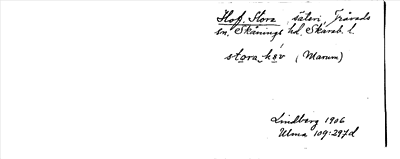 Hof, Stora, säteri, Trävads
sn, Skånings hd, Skarab. l.
stora hov (Marum)
Lindberg 1906
Ulma 109:297d